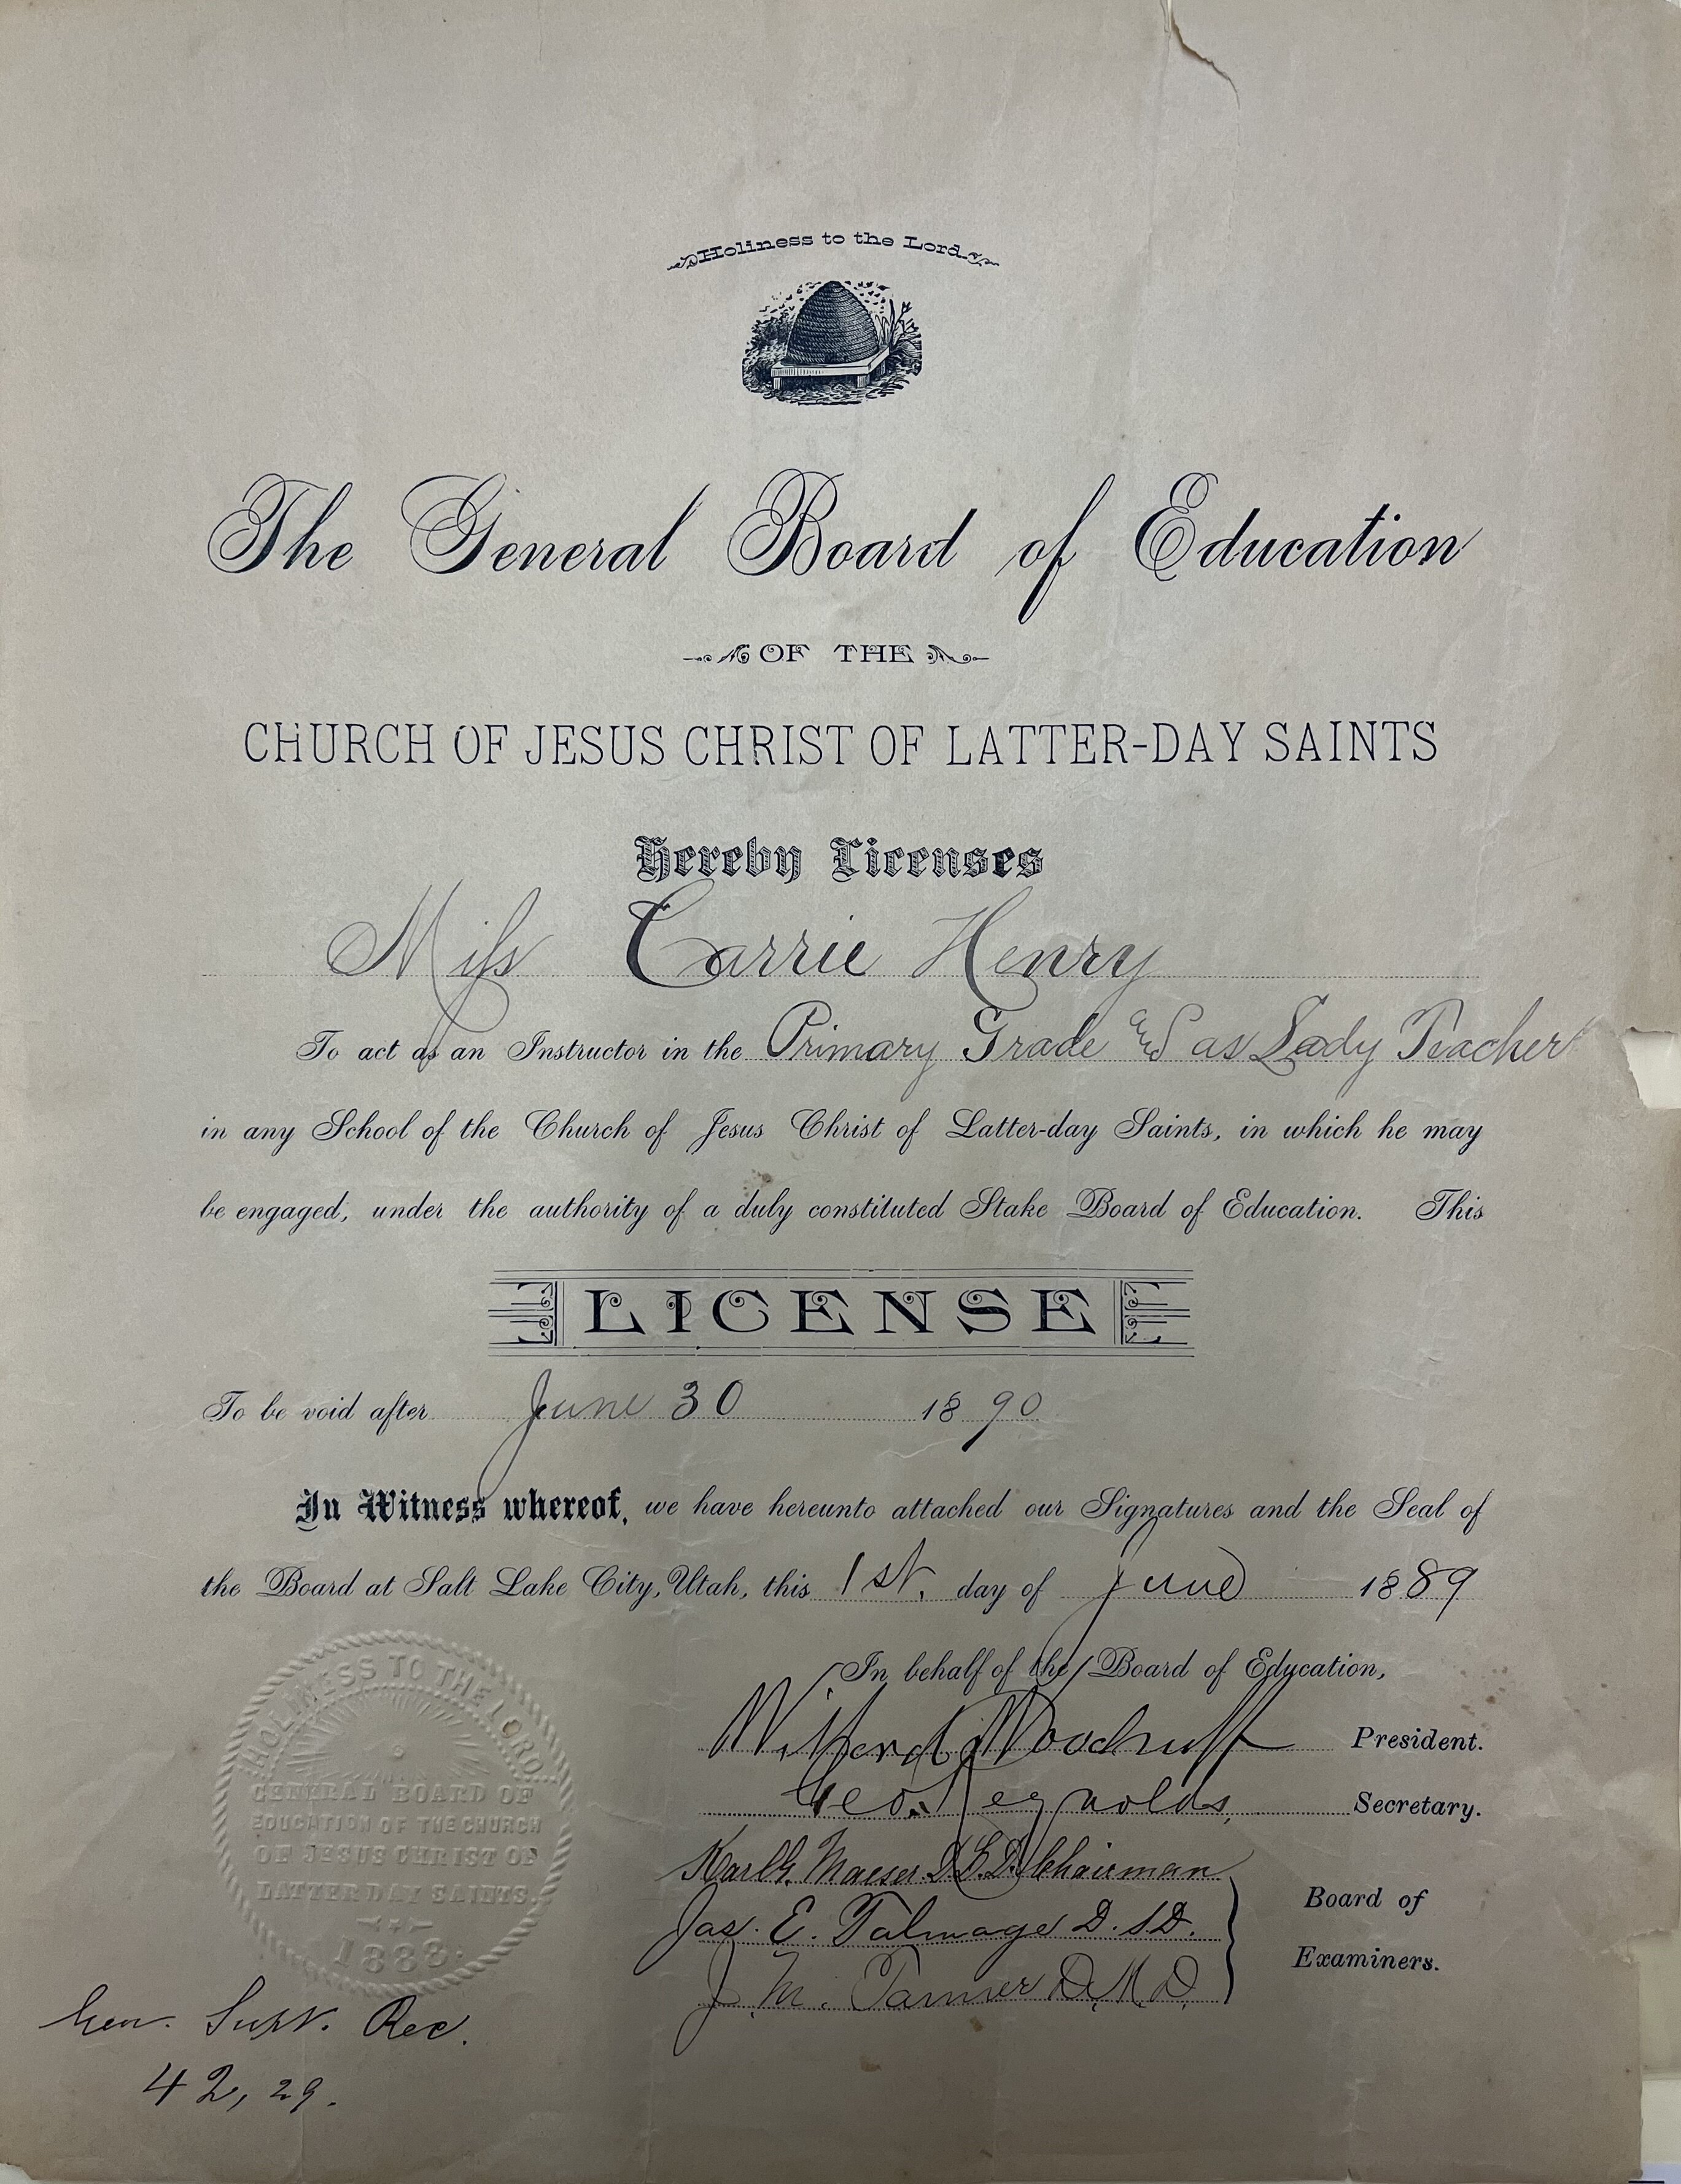 Holiness to the Lord
The General Board of Education
OF THE
CHURCH OF JESUS CHRIST OF LATTER-DAY SAINTS
Hereby Licenses
Miss Carrie Henry
To act as an Instructor in the Primary Grade and as Lady Teacher
in any School of the Church of Jesus Christ of Latter-day Saints, in which he may
be engaged, under the authority of a duly constituted Stake Board of Education. This
LICENSE
To be void after June 30 1890
In Witness whereof, we have hereunto attached our Signatures and the Seal of
the Board at Salt Lake City, Utah, this 1st. day of June 1889
In behalf of the Board of Education,
Wilford Woodruff President.
Geo. Reynolds, Secretary.
Karl G. Maeser D.L.D. Chairman
Jas. E. Talmage D.S.D.
J. M. Tanner D.M.D.
Board of
Examiners.
HOLINESS TO THE LORD.
GENERAL BOARD OF
EDUCATION OF THE CHURCH
OF JESUS CHRIST OF
LATTER DAY SAINTS.
1888.
Gen. Supt. Rec.
42, 29.